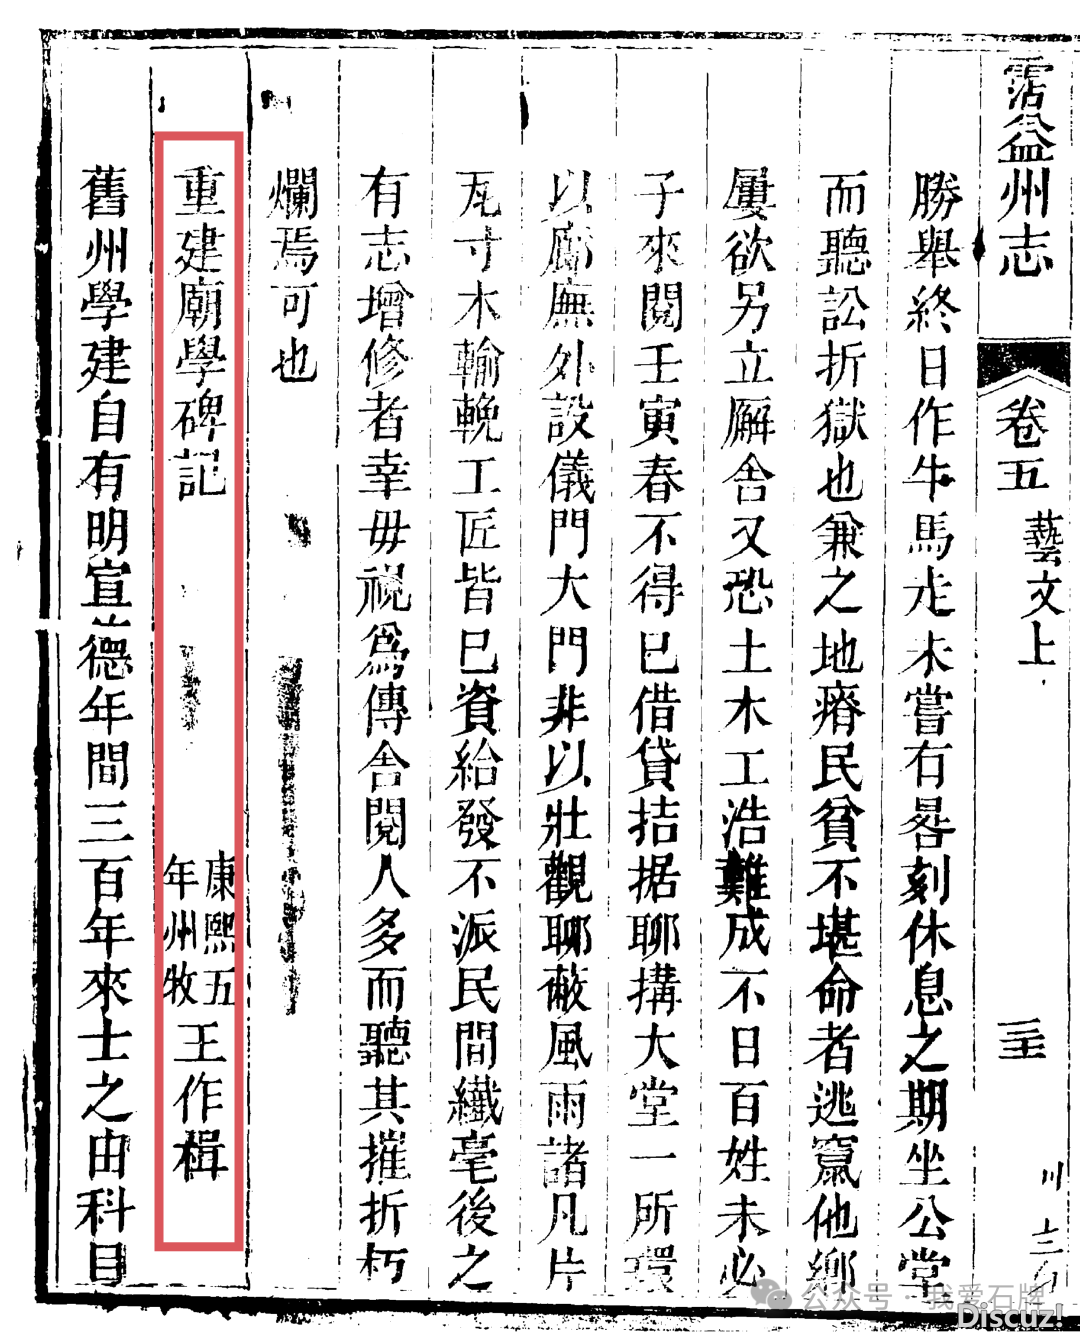 霑益州志 卷五 藝文上
勝舉終日作牛馬走未嘗有晷刻休息之期坐公堂
而聽訟折獄也兼之地瘠民貧不堪命者逃竄他鄉
屢欲另立廨舍又恐土木工浩難成不日百姓未必
子來閱壬寅春不得已借貸拮据聊搆大堂一所環
以廊廡外設儀門大門非以壯觀聊蔽風雨諸凡片
瓦寸木輸輓工匠皆已資給發不派民間纖毫後之
有志增修者幸毋視為傳舍閱人多而聽其摧折朽
爛焉可也
重建廟學碑記 康熙五年州牧王作楫
舊州學建自有明宣德年間三百年來士之由科目
公众号 · 我爱石牌
Discuz!